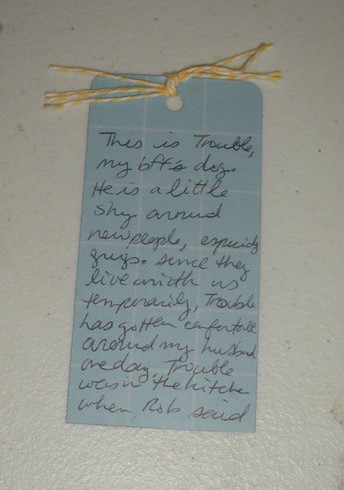 This is Trouble,
my bff's dog.
He is a little
shy around
new people, especialy
guys. since they
live with us
temporarily, Trouble
has gotten comfortable
around my husband
one day, Trouble
was in the kitchen
when Rob said